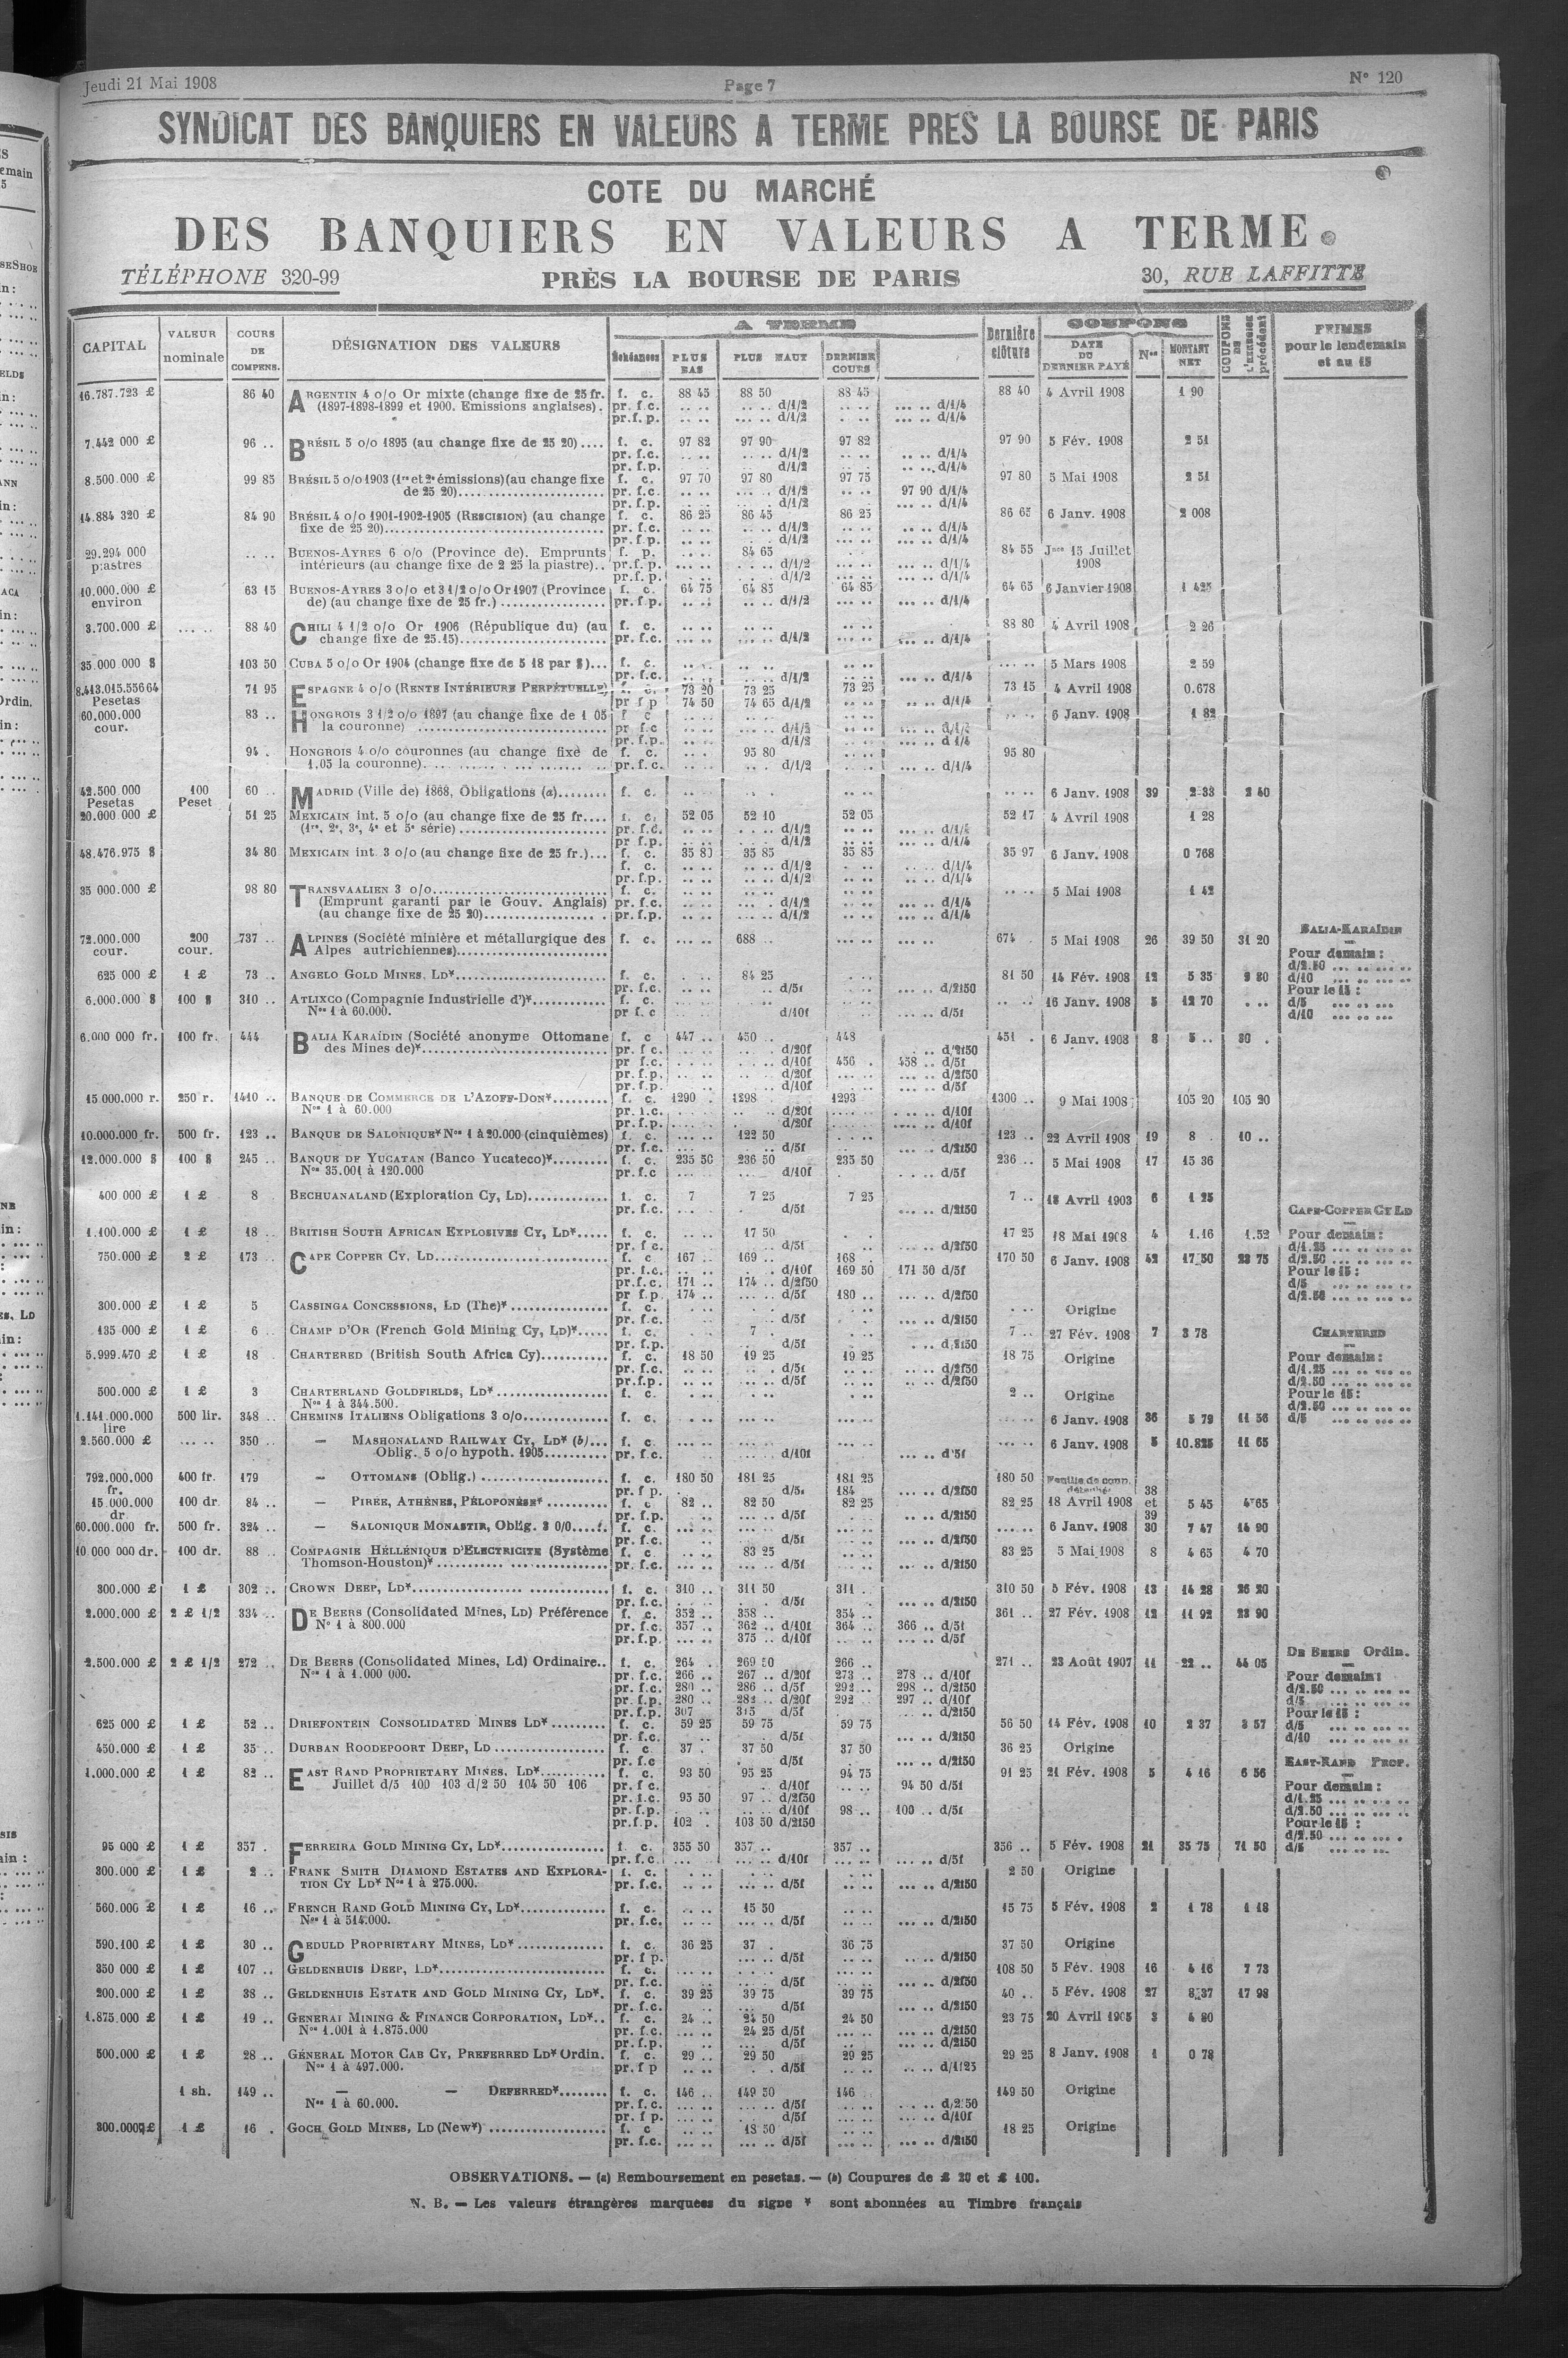 Jeudi 21 Mai 1908 Page 7 N° 120
SYNDICAT DES BANQUIERS EN VALEURS A TERME PRES LA BOURSE DE PARIS
COTE DU MARCHÉ
DES BANQUIERS EN VALEURS A TERME
TÉLÉPHONE 320-99 PRÈS LA BOURSE DE PARIS 30, RUE LAFFITTE
CAPITAL VALEUR nominale COURS DE COMPENS. DÉSIGNATION DES VALEURS A TERME Échéances PLUS BAS PLUS HAUT DERNIER COURS Dernière clôture COUPONS DATE DU DERNIER PAYÉ Nos MONTANT NET COUPONS DE L'EXERCICE précédent PRIMES pour le lendemain et au 15
16.787.723 £ 86 40 ARGENTIN 4 o/o Or mixte (change fixe de 25 fr. f. c. 88 45 88 50 88 45 88 40 4 Avril 1908 1 90
(1897-1898-1899 et 1900. Emissions anglaises). pr. f.c. d/1/2 d/1/4
pr.f. p. d/1/2 d/1/4
7.442 000 £ 96 .. BRÉSIL 5 o/o 1895 (au change fixe de 25 20).... f. c. 97 82 97 90 97 82 97 90 5 Fév. 1908 2 51
pr. f.c. d/1/2 d/1/4
pr. f.p. d/1/2 d/1/4
8.500.000 £ 99 85 BRÉSIL 5 o/o 1903 (1re et 2e émissions) (au change fixe f. c. 97 70 97 80 97 75 97 80 5 Mai 1908 2 51
de 25 20) pr. f.c. d/1/2 97 90 d/1/4
pr. f.p. d/1/2 d/1/4
14.884 320 £ 84 90 BRÉSIL 4 o/o 1901-1902-1905 (RESCISION) (au change f. c. 86 25 86 45 86 25 86 65 6 Janv. 1908 2 008
fixe de 25 20) pr. f.c. d/1/2 d/1/4
pr. f.p. d/1/2 d/1/4
29.294 000 BUENOS-AYRES 6 o/o (Province de). Emprunts f. p. 84 65 84 55 Jnce 15 Juillet
piastres intérieurs (au change fixe de 2 25 la piastre).. pr.f. p. d/1/2 d/1/4 1908
pr.f.p. d/1/2 d/1/4
10.000.000 £ 63 15 BUENOS-AYRES 3 o/o et 3 1/2 o/o Or 1907 (Province f. c. 64 75 64 85 64 85 64 65 6 Janvier 1908 1 425
environ de) (au change fixe de 25 fr.) pr. f.p. d/1/2 d/1/4
3.700.000 £ 88 40 CHILI 4 1/2 o/o Or 1906 (République du) (au f. c. 88 80 4 Avril 1908 2 26
change fixe de 25.15) pr. f.c. d/1/2 d/1/4
35.000 000 $ 103 50 CUBA 5 o/o Or 1904 (change fixe de 5 18 par $)... f. c. 5 Mars 1908 2 59
pr. f.c. d/1/2 d/1/4
8.413.015.556 64 71 95 ESPAGNE 4 o/o (RENTE INTÉRIEURE PERPÉTUELLE) f. c. 73 20 73 25 73 25 73 15 4 Avril 1908 0.678
Pesetas pr f p 74 50 74 65 d/1/2 d/1/4
60.000.000 83 .. HONGROIS 3 1/2 o/o 1897 (au change fixe de 1 05 f c 6 Janv. 1908 1 82
cour. la couronne) pr f.c d/1/2 d/1/4
pr. f.p. d/1/2 d 1/4
94 . HONGROIS 4 o/o couronnes (au change fixe de f. c. 95 80 95 80
1.05 la couronne) pr. f. c. d/1/2 d/1/4
42.500 000 100 60 .. MADRID (Ville de) 1868, Obligations (a) f. c. 6 Janv. 1908 39 2 33 2 40
Pesetas Peset
20.000 000 £ 51 25 MEXICAIN int. 5 o/o (au change fixe de 25 fr.... f. c. 52 05 52 10 52 05 52 17 4 Avril 1908 1 28
(1re, 2e, 3e, 4e et 5e série) pr. f.c. d/1/2 d/1/4
pr f.p. d/1/2 d/1/4
48.476.975 $ 34 80 MEXICAIN int. 3 o/o (au change fixe de 25 fr.)... f. c. 35 80 35 85 35 85 35 97 6 Janv. 1908 0 768
f. c. d/1/2 d/1/4
pr. f.p. d/1/2 d/1/4
35 000.000 £ 98 80 TRANSVAALIEN 3 o/o f. c. 5 Mai 1908 1 42
(Emprunt garanti par le Gouv. Anglais) pr. f.c. d/1/2 d/1/4
(au change fixe de 25 20) pr. f.p. d/1/2 d/1/4
72.000.000 200 737 .. ALPINES (Société minière et métallurgique des f. c. 688 .. 674 . 5 Mai 1908 26 39 50 31 20 BALIA-KARAÏDIN
cour. cour. Alpes autrichiennes) Pour demain :
625 000 £ 1 £ 73 .. ANGELO GOLD MINES, LD* f. c. 84 25 81 50 14 Fév. 1908 12 5 35 9 80 d/2.50
pr. f.c. d/5f d/2f50 d/10
6.000.000 $ 100 $ 310 .. ATLIXCO (Compagnie Industrielle d')* f. c. 16 Janv. 1908 5 12 70 Pour le 15 :
Nos 1 à 60.000. pr f. c d/10f d/5f d/5
d/10
6.000 000 fr. 100 fr. 444 BALIA KARAÏDIN (Société anonyme Ottomane f. c 447 .. 450 .. 448 451 . 6 Janv. 1908 8 5 .. 30 .
des Mines de)* pr. f c. d/20f d/2f50
pr f.c. d/10f 456 . 458 .. d/5f
pr. f.p. d/20f d/2f50
pr. f.p. d/10f d/5f
15 000.000 r. 250 r. 1410 .. BANQUE DE COMMERCE DE L'AZOFF-DON* f. c. 1290 . 1298 . 1293 1300 .. 9 Mai 1908 105 20 105 20
Nos 1 à 60.000 pr. f.c. d/20f d/10f
pr. f.p. d/20f d/10f
10.000.000 fr. 500 fr. 123 .. BANQUE DE SALONIQUE* Nos 1 à 20.000 (cinquièmes) f. c. 122 50 123 .. 22 Avril 1908 19 8 . 10 ..
pr. f.c. d/5f d/2f50
12.000.000 $ 100 $ 245 .. BANQUE DE YUCATAN (Banco Yucateco)* f. c. 235 50 236 50 235 50 236 .. 5 Mai 1908 17 15 36
Nos 35.001 à 120.000 pr. f.c d/10f d/5f
400 000 £ 1 £ 8 . BECHUANALAND (Exploration Cy, LD) f. c. 7 7 25 7 25 7 .. 18 Avril 1903 6 1 25
pr. f.c. d/5f d/2f50 CAPE-COPPER CY LD
1.100.000 £ 1 £ 18 .. BRITISH SOUTH AFRICAN EXPLOSIVES CY, LD* f. c. 17 50 17 25 18 Mai 1908 4 1.16 1.52 Pour demain :
pr. f c. d/5f d/2f50 d/1.25
750.000 £ 2 £ 173 .. CAPE COPPER CY. LD f. c 167 .. 169 .. 168 . 170 50 6 Janv. 1908 42 17 50 23 75 d/2.50
pr. f.c. d/10f 169 50 171 50 d/5f Pour le 15 :
pr.f.c. 171 .. 174 .. d/2f50 d/5
pr f.p. 174 .. d/5f 180 .. d/2f50 d/2.50
300.000 £ 1 £ 5 CASSINGA CONCESSIONS, LD (The)* f. c. Origine
pr. f.c. d/5f d/2f50
135 000 £ 1 £ 6 . CHAMP D'OR (French Gold Mining Cy, LD)* f. c. 7 . 7 .. 27 Fév. 1908 7 3 78 CHARTERED
pr. f.p. d/5f d/2f50
5.999.470 £ 1 £ 18 CHARTERED (British South Africa Cy) f. c. 18 50 19 25 19 25 18 75 Origine Pour demain :
pr. f.c. d/5f d/2f50 d/1.25
pr.f.p. d/5f d/2f50 d/2.50
500.000 £ 1 £ 3 CHARTERLAND GOLDFIELDS, LD* f. c. 2 .. Origine Pour le 15 :
Nos 1 à 344.500. d/2.50
1.141.000.000 500 lir. 348 .. CHEMINS ITALIENS Obligations 3 o/o f. c. 6 Janv. 1908 36 5 79 11 56 d/5
lire
2.560.000 £ 350 .. — MASHONALAND RAILWAY CY, LD* (b) f. c. 6 Janv. 1908 5 10.825 11 65
Oblig. 5 o/o hypoth. 1905 pr. f.c. d/10f d'5f
792.000.000 400 fr. 179 — OTTOMANS (Oblig.) f. c. 180 50 181 25 181 25 180 50 Feuille de coup.
fr. pr. f p. d/5f 184 d/2f50 détachée 38
15.000.000 100 dr. 84 .. — PIRÉE, ATHÈNES, PÉLOPONÈSE* f. c. 82 .. 82 50 82 25 82 25 18 Avril 1908 et 5 45 4 65
dr. pr. f.p. d/5f d/2f50 39
60.000.000 fr. 500 fr. 324 .. — SALONIQUE MONASTIR, Oblig. 3 0/0 f. c. 6 Janv. 1908 30 7 47 14 90
pr. f.c. d/5f d/2f50
10.000 000 dr. 100 dr. 88 .. COMPAGNIE HÉLLÉNIQUE D'ELECTRICITE (Système f. c 83 25 83 25 5 Mai 1908 8 4 65 4 70
Thomson-Houston)* pr. f.c. d/5f d/2f50
300.000 £ 1 £ 302 .. CROWN DEEP, LD* f. c. 310 .. 311 50 311 . 310 50 5 Fév. 1908 13 14 28 26 20
pr. f.c. d/5f d/2f50
2.000.000 £ 2 £ 1/2 334 .. DE BEERS (Consolidated Mines, LD) Préférence f. c. 352 .. 358 .. 354 .. 361 .. 27 Fév. 1908 12 11 92 23 90
N° 1 à 800.000 pr. f.c. 357 .. 362 .. d/10f 364 .. 366 .. d/5f
pr. f.p. 375 .. d/10f d/5f DE BEERS Ordin.
2.500.000 £ 2 £ 1/2 272 .. DE BEERS (Consolidated Mines, Ld) Ordinaire.. f. c. 264 . 269 50 266 .. 271 .. 23 Août 1907 11 22 .. 44 05
Nos 1 à 1.000 000. pr. f.c. 266 .. 267 .. d/20f 273 .. 278 .. d/10f Pour demain :
pr. f.c. 280 .. 286 .. d/5f 292 .. 298 .. d/2f50 d/2.50
pr. f.p. 280 .. 282 .. d/20f 292 .. 297 .. d/10f d/5
pr. f.p. 307 315 d/5f d/2f50 Pour le 15 :
625 000 £ 1 £ 52 .. DRIEFONTEIN CONSOLIDATED MINES LD* f. c. 59 25 59 75 59 75 56 50 14 Fév. 1908 10 2 37 3 57 d/5
pr. f.c. d/5f d/2f50 d/10
450.000 £ 1 £ 35 .. DURBAN ROODEPOORT DEEP, LD f. c 37 . 37 50 37 50 36 25 Origine
pr. f.c d/5f d/2f50 EAST-RAND PROP.
1.000.000 £ 1 £ 82 .. EAST RAND PROPRIETARY MINES, LD* f. c. 93 50 95 25 94 75 91 25 21 Fév. 1908 5 4 16 6 56
Juillet d/5 100 103 d/2 50 104 50 106 pr. f c. d/10f 94 50 d/5f Pour demain :
pr. f.c. 95 50 97 .. d/2f50 d/1.25
pr. f.p. d/10f 98 .. 100 .. d/5f d/2.50
pr.f.p. 102 . 103 50 d/2f50 Pour le 15 :
d/2.50
95 000 £ 1 £ 357 . FERREIRA GOLD MINING CY, LD* f. c. 355 50 357 .. 357 .. 356 .. 5 Fév. 1908 21 35 75 71 50 d/5
pr. f.c. d/10f d/5f
300.000 £ 1 £ 2 .. FRANK SMITH DIAMOND ESTATES AND EXPLORA- f. c. 2 50 Origine
TION CY LD* Nos 1 à 275.000. pr. f.c. d/5f d/2f50
560.000 £ 1 £ 16 .. FRENCH RAND GOLD MINING CY, LD* f. c. 15 50 15 75 5 Fév. 1908 2 1 78 1 18
Nos 1 à 514.000. pr. f.c. d/5f d/2f50
590.100 £ 1 £ 30 .. GEDULD PROPRIETARY MINES, LD* f. c. 36 25 37 . 36 75 37 50 Origine
pr. f p. d/5f d/2f50
350 000 £ 1 £ 107 .. GELDENHUIS DEEP, LD* f. c. 108 50 5 Fév. 1908 16 4 16 7 73
pr. f.c. d/5f d/2f50
200.000 £ 1 £ 38 .. GELDENHUIS ESTATE AND GOLD MINING CY, LD*. f. c. 39 25 39 75 39 75 40 .. 5 Fév. 1908 27 8 37 17 98
pr. f.c. d/5f d/2f50
1.875.000 £ 1 £ 19 .. GENERAL MINING & FINANCE CORPORATION, LD*.. f. c. 24 .. 24 50 24 50 23 75 20 Avril 1905 3 4 80
Nos 1.001 à 1.875.000 pr. f.c. 24 25 d/5f d/2f50
pr. f.p. d/5f d/2f50
500.000 £ 1 £ 28 .. GÉNÉRAL MOTOR CAB CY, PREFERRED LD* Ordin. f. c. 29 .. 29 50 29 25 29 25 8 Janv. 1908 1 0 78
Nos 1 à 497.000. pr. f p d/5f d/1f25
1 sh. 149 .. — — DEFERRED* f. c. 146 .. 149 50 146 149 50 Origine
Nos 1 à 60.000. pr. f.c. d/5f d/2 50
pr. f p. d/5f d/10f
300.000 £ 1 £ 16 . GOCH GOLD MINES, LD (New*) f. c 18 50 18 25 Origine
pr. f.c. d/5f d/2f50
OBSERVATIONS. — (a) Remboursement en pesetas. — (b) Coupures de £ 20 et £ 100.
N. B. — Les valeurs étrangères marquées du signe * sont abonnées au Timbre français